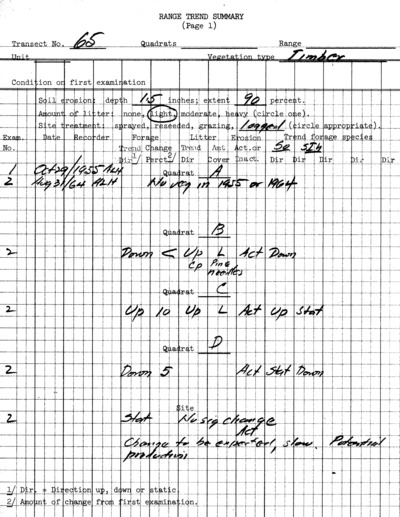 RANGE TREND SUMMARY
(Page 1)
Transect No. 65 Quadrats Range
Unit Vegetation type Timber
Condition on first examination
Soil erosion: depth 1.5 inches; extent 90 percent.
Amount of litter: none, light, moderate, heavy (circle one).
Site treatment: sprayed, reseeded, grazing, logged (circle appropriate).
Exam. Date Recorder Forage Litter Erosion Trend forage species
No. Trend Change Trend Amt Act.or Se SIh
Dir 1/ Perct 2/ Dir Cover Inact. Dir Dir Dir Dir Dir Dir
1 Oct 29/1955 ALH Quadrat A
2 Aug 31/64 ALH No veg in 1955 or 1964
Quadrat B
2 Down < Up L Act Down
Cp Pine
needles
Quadrat C
2 Up 10 Up L Act Up Stat
Quadrat D
2 Down 5 Act Stat Down
Site
2 Stat No sig change
Act
Change to be expected, slow. Potential
production
1/ Dir. = Direction up, down or static.
2/ Amount of change from first examination.